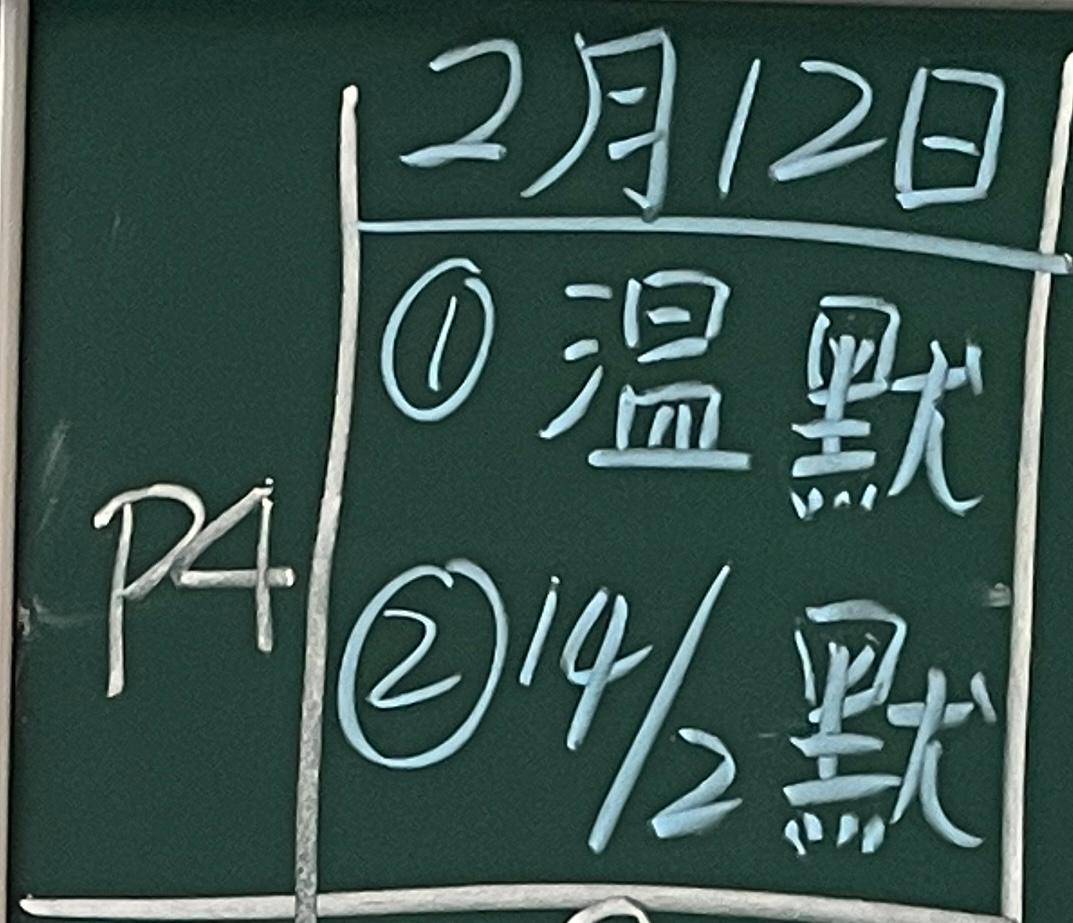 2月12日
① 温默
P4
② 14/2 默